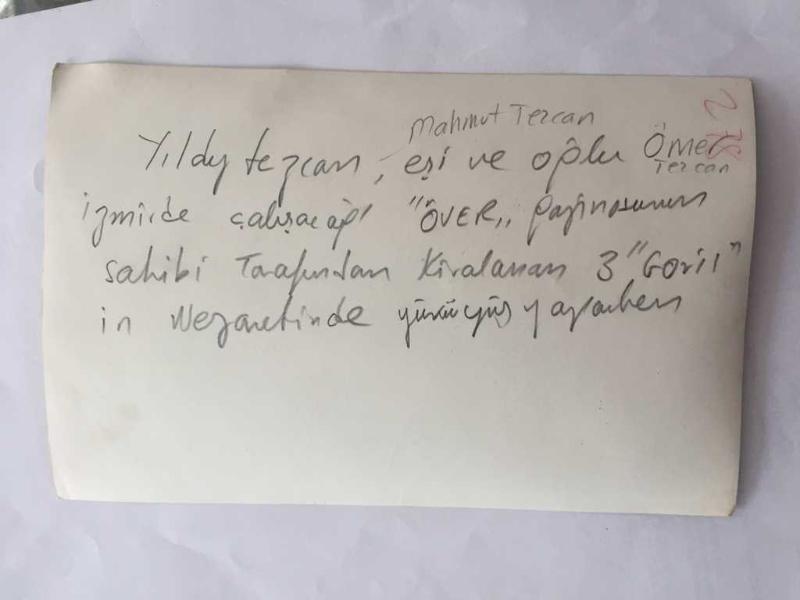 Mahmut Tezcan
Yıldız tezcan, eşi ve oğlu Ömer
Tezcan
izmirde çalışacağı "ÖVER,, gazinosunun
sahibi Tarafından Kiralanan 3 "Goril"
in Nezaretinde yürüyüş yaparken